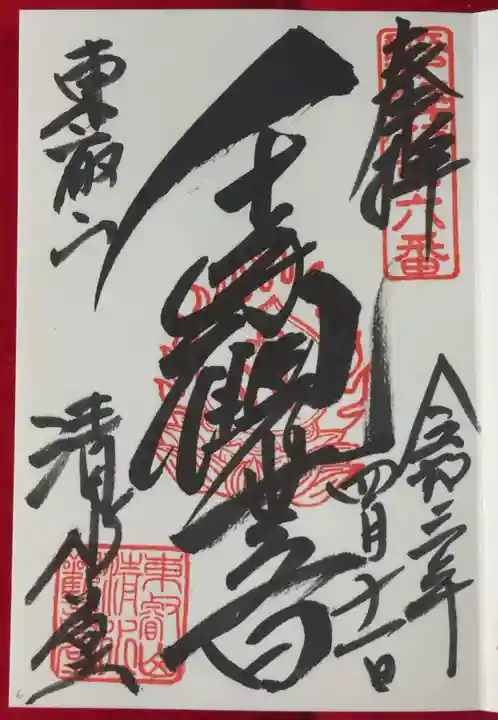 六番
奉拝
令和三年
四月十一日
千手觀世音
東叡山
清水堂
東叡山
清水